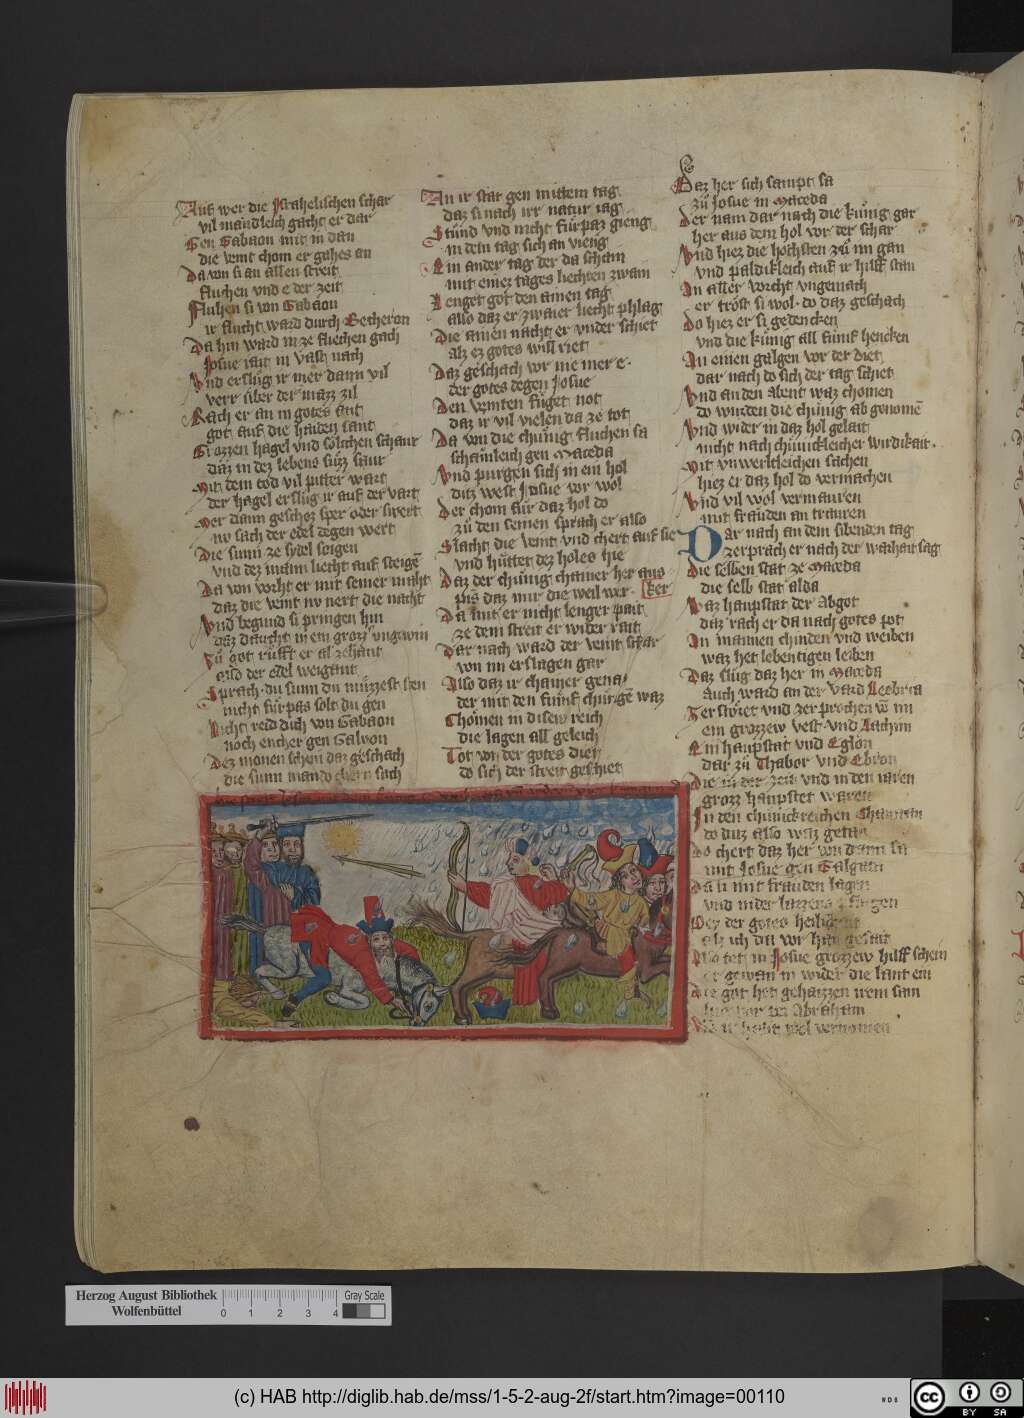 Auf wer die Israhelischen schar
vil mandleich gacht er dar
Gen Gabaon mit in dan
die veint chom er gahes an
Da von si an allen streit
fluhen vnd e der zeit
Fluhen si von Gabaon
ir flucht ward durch Betheron
Da hin ward in ze fliechen gach
Josue rait in vast nach
Vnd erslůg ir mer dann vil
verr über der mazz zil
Rach er an in gotes ant
got auf die haiden sant
Grozzen hagel vnd sölchen schaur
daz in dez lebens süzz saur
Mit dem tod vil pitter wart
der hagel erslůg ir auf der vart
Mer dann geschoz sper oder swert
nv sach der edel degen wert
Die sunn ze sydel seigen
vnd dez mann liecht auf steigē
Da von vorht er mit seiner maht
daz die veint nv nert die nacht
Vnd begund si pringen hin
daz daucht in ein groz vngewin
Zů got rüfft er al zehant
also der edel weigant
Sprach du sunn du müzzest sten
nicht fürpas solt du gen
Nicht reid dich von Gabaon
noch encher gen Galvon
Dez monen schein daz geschach
die sunn man do chern sach
An ir star gen mittem tag
daz si nach irr natur iag
Stůnd vnd nicht fürpaz gieng
in dem tag sich an vieng
Ein ander tag der da schain
mit einer tages liechten zwain
Lenget got den ainen tag
also daz er zwaier liecht phlag
Die ainen nacht er vnder schiet
alz ez gotes will riet
Daz geschach vor nie mer e
der gotes degen Josue
Den veinten füget not
daz ir vil vielen da ze tot
Da von die chünig fluchen sa
schäuleich gen Maceda
Vnd purgen sich in ein hol
ditz west Josue vor wol
Der chom für daz hol do
zů den seinen sprach er also
Slacht die veint vnd chert auf sie
vnd hüttet dez holes hie
Daz der chünig chainer her aus
ker
Da mit er nicht lenger pait
ze dem streit er wider rait
Dar nach ward der veint schar
von im erslagen gar
Also daz ir chainer genas
der mit den fünf chünigē waz
Chomen in disew reich
die lagen all geleich
Tot von der gotes diet
do sich der streit geschiet
Daz her sich sampt sa
zů Josue in Maceda
Der nam dar nach die künig gar
her aus dem hol vor der schar
Vnd hiez die höchsten zů im gan
vnd paldikleich auf ir hilff stan
In aller vorcht vngemach
er tröst si wol do daz geschach
Do hiez er si gedencken
vnd die künig all fünf hencken
An einen galgen vor der diet
dar nach do sich der tag schiet
Vnd an den abent waz chomen
do wurden die chünig ab genomē
Vnd wider in daz hol gelait
nicht nach chünickleicher wirdikait
Mit vnwerltleichen sachen
hiez er daz hol do vermachen
Vnd vil wol vermauren
mit frauden an trauren
Dar nach an dem sibenden tag
zerprach er nach der warhait sag
Die selben stat ze Maceda
die selb stat alda
Waz haupstat der Abgot
daz rach er da nach gotes pot
In mannen chinden vnd weiben
waz het lebentigen leiben
Daz slůg daz her in Maceda
auch ward an der vard
Zerstöret vnd zerprochen võ im
ein grozzew vest vnd Lachim
Ein haupstat vnd Eglon
dar zů Thabor vnd Ebron
Die in der zeit vnd in den iaren
grozz haupstet waren
In den chünickreichen
do ditz also waz getan
Do chert daz her
mit Josue gen Galgala
Da si mit frauden lagen
vnd
Wey der gotes
alz ich
Also tet in Josue grozzew hilff schein
er gewan in wider die lant ein
Die got het gehaizzen irem stam
Abraham
wol vernomen
Herzog August Bibliothek
Wolfenbüttel
0 1 2 3 4
Gray Scale
(c) HAB http://diglib.hab.de/mss/1-5-2-aug-2f/start.htm?image=00110
WDB
cc BY SA